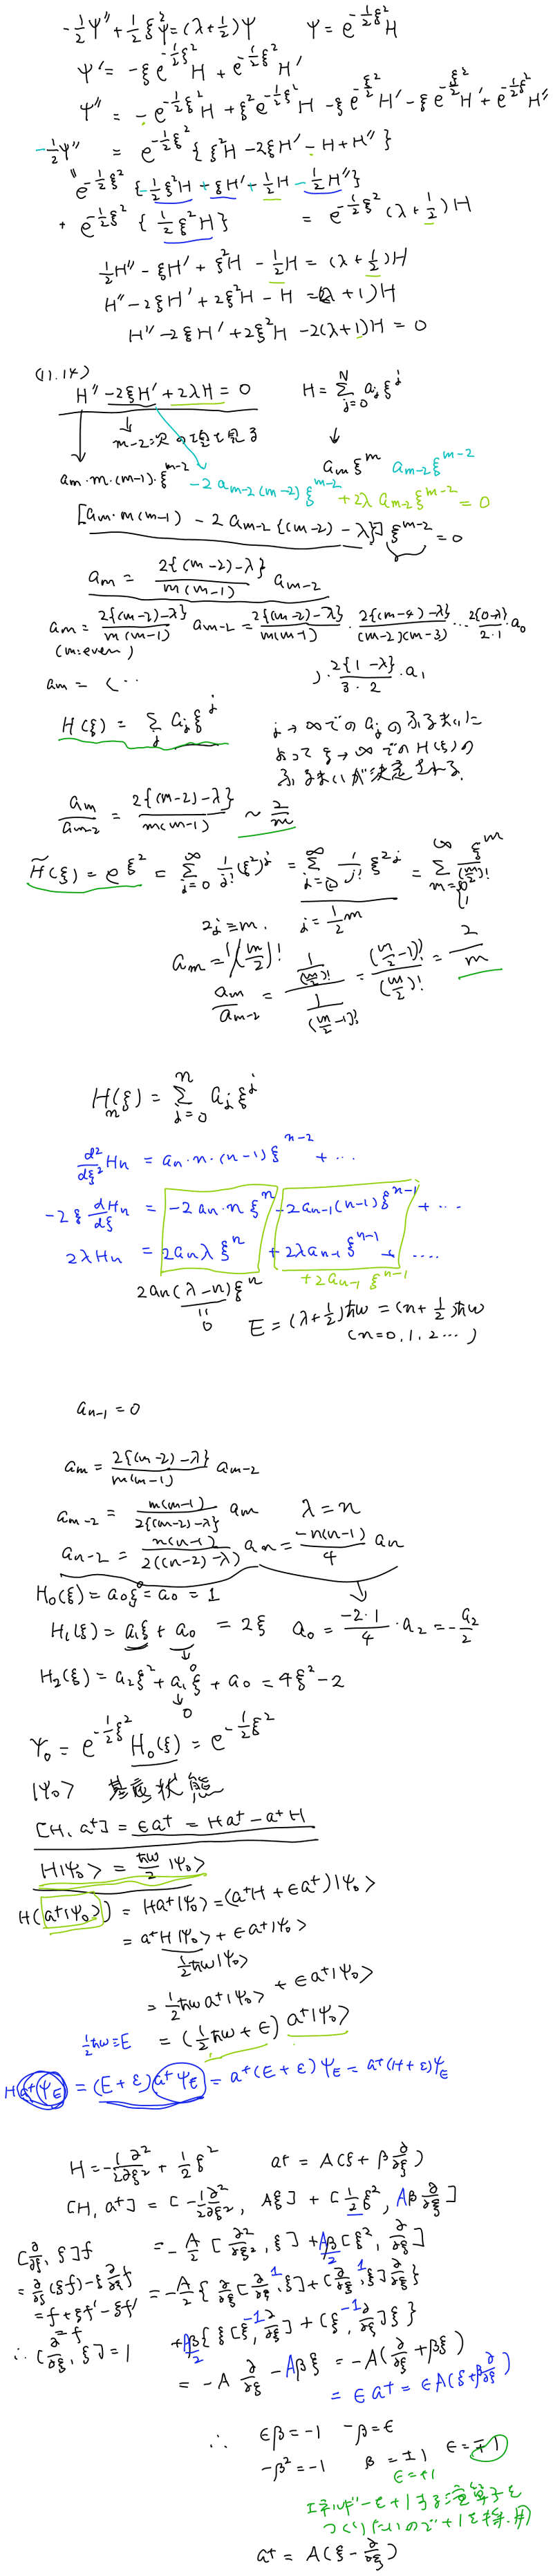 -½Ψ'' + ½ξ²Ψ = (λ+½)Ψ  Ψ = e^{-½ξ²}H
Ψ' = -ξe^{-½ξ²}H + e^{-½ξ²}H'
Ψ'' = -e^{-½ξ²}H + ξ²e^{-½ξ²}H - ξe^{-ξ²/2}H' - ξe^{-ξ²/2}H' + e^{-½ξ²}H''
-½Ψ'' = e^{-½ξ²}{ξ²H - 2ξH' - H + H''}
e^{-½ξ²}{-½ξ²H + ξH' + ½H - ½H''}
+ e^{-½ξ²}{½ξ²H} = e^{-½ξ²}(λ+½)H
½H'' - ξH' + ξ²H - ½H = (λ+½)H
H'' - 2ξH' + 2ξ²H - H = (2λ+1)H
H'' - 2ξH' + 2ξ²H - 2(λ+1)H = 0
(11.14)
H'' - 2ξH' + 2λH = 0  H = Σ_{j=0}^{N} a_j ξ^j
m-2次の項を見る
a_m·m·(m-1)·ξ^{m-2}  -2a_{m-2}(m-2)ξ^{m-2}  a_m ξ^m  a_{m-2}ξ^{m-2}
+2λa_{m-2}ξ^{m-2} = 0
[a_m·m(m-1) - 2a_{m-2}{(m-2)-λ}]ξ^{m-2} = 0
a_m = 2{(m-2)-λ}/m(m-1) a_{m-2}
a_m = 2{(m-2)-λ}/m(m-1) a_{m-2} = 2{(m-2)-λ}/m(m-1) · 2{(m-4)-λ}/(m-2)(m-3) ··· 2{0-λ}/2·1 · a_0
(m:even)
a_m = (··· )· 2{1-λ}/3·2 · a_1
H(ξ) = Σ_j a_j ξ^j
j→∞でのa_jのふるまいに
よってξ→∞でのH(ξ)の
ふるまいが決定される.
a_m/a_{m-2} = 2{(m-2)-λ}/m(m-1) ~ 2/m
H̃(ξ) = e^{ξ²} = Σ_{j=0}^{∞} 1/j! (ξ²)^j = Σ_{j=0}^{∞} 1/j! ξ^{2j} = Σ_{m=0}^{∞} ξ^m/(m/2)!
2j=m.  j=½m
a_m = 1/(m/2)!
a_m/a_{m-2} = (1/(m/2)!)/(1/(m/2-1)!) = (m/2-1)!/(m/2)! = 2/m
H_n(ξ) = Σ_{j=0}^{n} a_j ξ^j
d²/dξ² H_n = a_n·n·(n-1)ξ^{n-2} + ···
-2ξ dH_n/dξ = -2a_n·n ξ^n -2a_{n-1}(n-1)ξ^{n-1} + ···
2λH_n = 2a_nλξ^n + 2λa_{n-1}ξ^{n-1} + ····
2a_n(λ-n)ξ^n  +2a_{n-1}ξ^{n-1}
=0
E = (λ+½)ħω = (n+½)ħω
(n=0,1,2···)
a_{n-1} = 0
a_m = 2{(m-2)-λ}/m(m-1) a_{m-2}
a_{m-2} = m(m-1)/2{(m-2)-λ} a_m  λ=n
a_{n-2} = n(n-1)/2((n-2)-λ) a_n = -n(n-1)/4 a_n
H_0(ξ) = a_0ξ^0 = a_0 = 1
H_1(ξ) = a_1ξ + a_0 = 2ξ  a_0 = -2·1/4 · a_2 = -a_2/2
0
H_2(ξ) = a_2ξ² + a_1ξ + a_0 = 4ξ²-2
0
Ψ_0 = e^{-½ξ²}H_0(ξ) = e^{-½ξ²}
|Ψ_0> 基底状態
[H, a†] = εa† = Ha† - a†H
H|Ψ_0> = ħω/2 |Ψ_0>
H(a†|Ψ_0>) = Ha†|Ψ_0> = (a†H + εa†)|Ψ_0>
= a†H|Ψ_0> + εa†|Ψ_0>
½ħω|Ψ_0>
= ½ħωa†|Ψ_0> + εa†|Ψ_0>
½ħω=E  = (½ħω + ε)a†|Ψ_0>
Ha†Ψ_E = (E+ε)a†Ψ_E = a†(E+ε)Ψ_E = a†(H+ε)Ψ_E
H = -½ ∂²/∂ξ² + ½ξ²  a† = A(ξ + β ∂/∂ξ)
[H, a†] = [-½ ∂²/∂ξ², Aξ] + [½ξ², Aβ ∂/∂ξ]
[∂/∂ξ, ξ]f  = -A/2 [∂²/∂ξ², ξ] + Aβ/2 [ξ², ∂/∂ξ]
= ∂/∂ξ(ξf) - ξ ∂/∂ξ f  = -A/2 {∂/∂ξ[∂/∂ξ, ξ] + [∂/∂ξ, ξ]∂/∂ξ}
= f + ξf' - ξf'
= f  + Aβ/2 {ξ[ξ, ∂/∂ξ] + [ξ, ∂/∂ξ]ξ}
∴ [∂/∂ξ, ξ] = 1  = -A ∂/∂ξ - Aβξ = -A(∂/∂ξ + βξ)
= εa† = εA(ξ + β ∂/∂ξ)
∴ εβ = -1  -β = ε
-β² = -1  β = ±1  ε = ∓1
ε=+1
エネルギーを+1する演算子を
つくりたいので+1を採用
a† = A(ξ - ∂/∂ξ)